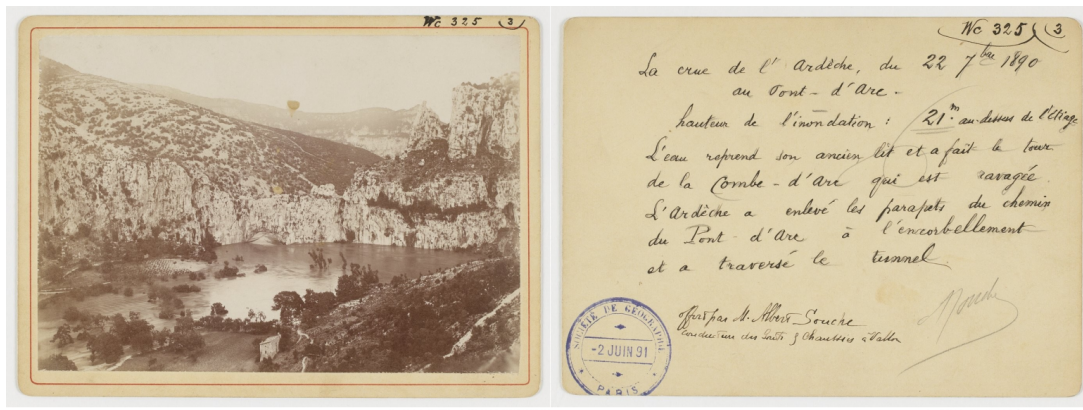 Wc 325 (3)
Wc 325 (3
La crue de l'Ardèche, du 22 7bre 1890
au Pont-d'Arc -
hauteur de l'inondation : 21m. au-dessus de l'Etiage
L'eau reprend son ancien lit et a fait le tour
de la Combe-d'Arc qui est ravagée.
L'Ardèche a enlevé les parapets du chemin
du Pont-d'Arc à l'encorbellement
et a traversé le tunnel
offert par M. Albert
conducteur des Ponts & Chaussées à Vallon
SOCIÉTÉ DE GÉOGRAPHIE
-2 JUIN 91
PARIS